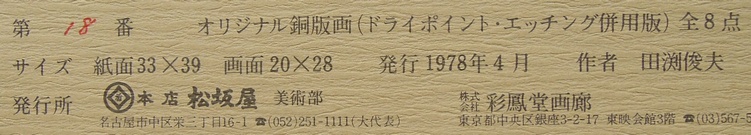 第 18 番 オリジナル銅版画(ドライポイント・エッチング併用版) 全8点
サイズ 紙面33×39 画面20×28 発行1978年4月 作者 田渕俊夫
発行所 本店 松坂屋 美術部 株式会社 彩鳳堂画廊
名古屋市中区栄三丁目16-1 ☎(052)251-1111(大代表) 東京都中央区銀座3-2-17 東映会館3階 ☎(03)567-5